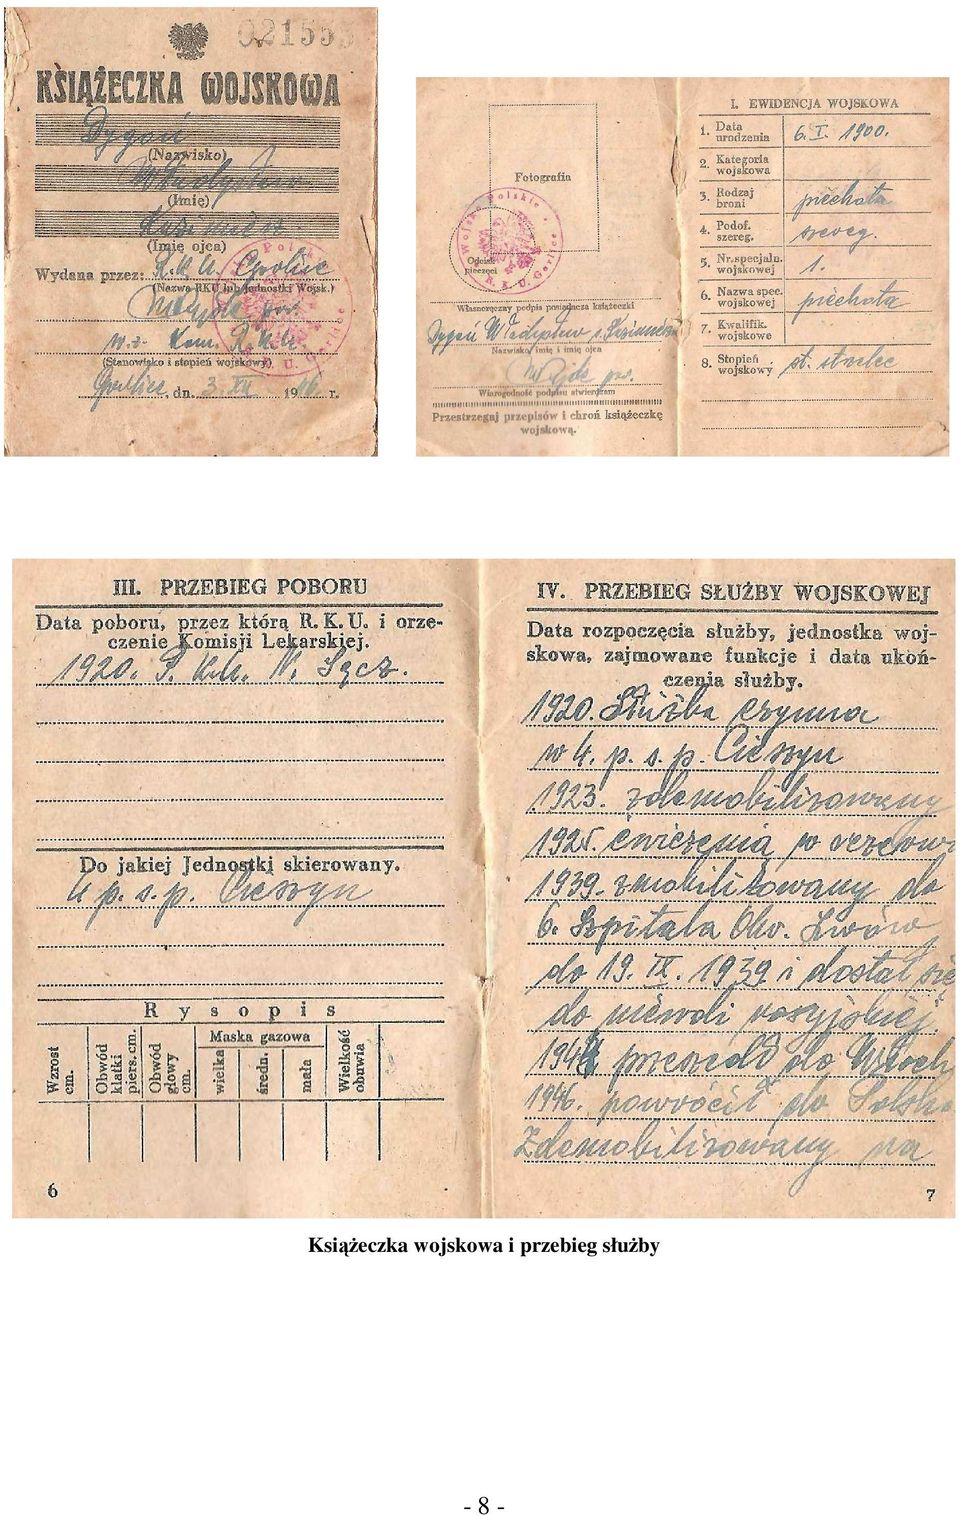 021555
KSIĄŻECZKA WOJSKOWA
Dygoń
(Nazwisko)
Władysław
(Imię)
Kazimierz
(Imię ojca)
Wydana przez: R.K.U. Gorlice
(Nazwa RKU lub Jednostki Wojsk.)
por.
w.z. Kom. R.K.U.
(Stanowisko i stopień wojskowy)
Gorlice, dn. 3. XII 1946 r.
Fotografia
Odcisk
pieczęci
Własnoręczny podpis posiadacza książeczki
Dygoń Władysław s. Kazimierza
Nazwisko, imię i imię ojca
por.
Wiarogodność podpisu stwierdzam
Przestrzegaj przepisów i chroń książeczkę
wojskową.
I. EWIDENCJA WOJSKOWA
1. Data urodzenia 6. I. 1900.
2. Kategoria wojskowa
3. Rodzaj broni piechota
4. Podof. szereg. szereg.
5. Nr. specjaln. wojskowej 1.
6. Nazwa spec. wojskowej piechota
7. Kwalifik. wojskowe
8. Stopień wojskowy st. strzelec
III. PRZEBIEG POBORU
Data poboru, przez którą R.K.U. i orze-
czenie Komisji Lekarskiej.
1920. P.K.U. N. Sącz.
Do jakiej Jednostki skierowany.
4 p. s. p. Cieszyn
Rysopis
Wzrost cm.
Obwód klatki piers. cm.
Obwód głowy cm.
Maska gazowa
wielka
średn.
mała
Wielkość obuwia
6
IV. PRZEBIEG SŁUŻBY WOJSKOWEJ
Data rozpoczęcia służby, jednostka woj-
skowa, zajmowane funkcje i data ukoń-
czenia służby.
1920. Służba czynna
w 4. p. s. p. Cieszyn
1923. zdemobilizowany
1925. ćwiczenia w
1939. zmobilizowany do
6. Szpitala Okr. Lwów
do 19. IX. 1939 i dostał się
do niewoli rosyjskiej.
1944 przeszedł do Włoch
1946. powrócił do Polski
Zdemobilizowany na
7
Książeczka wojskowa i przebieg służby
- 8 -